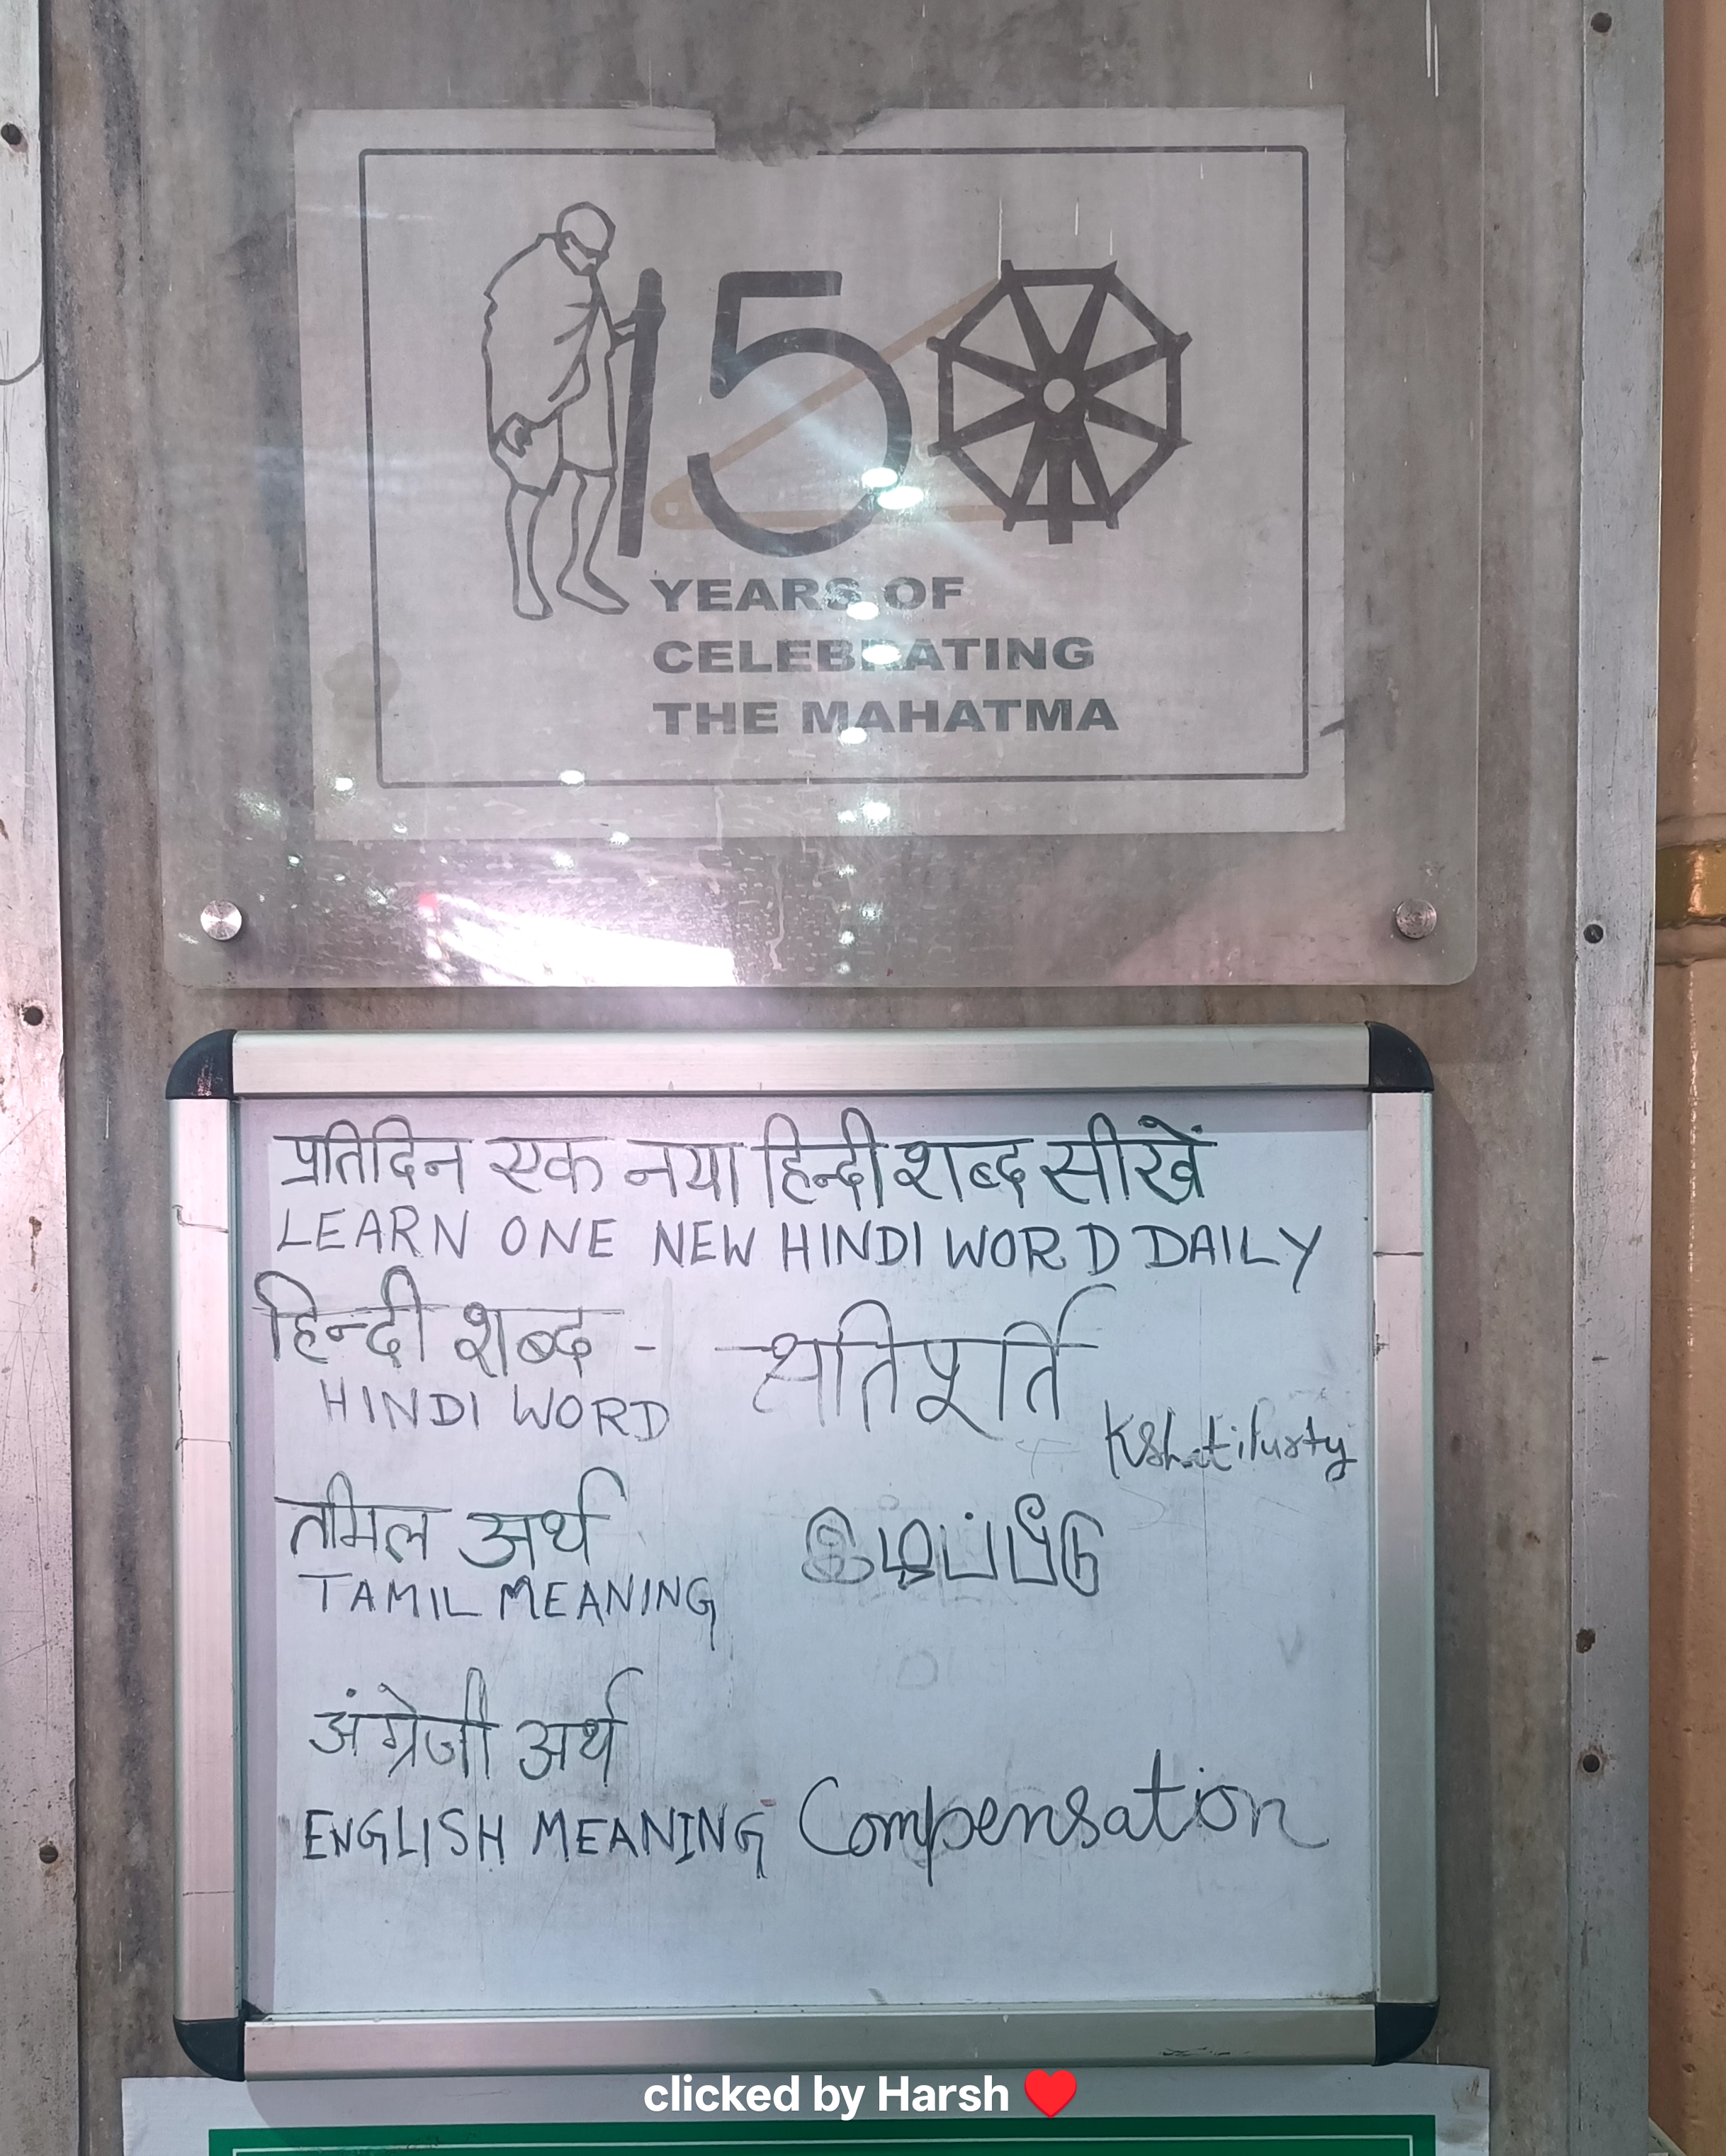 150
YEARS OF
CELEBRATING
THE MAHATMA
प्रतिदिन एक नया हिन्दी शब्द सीखें
LEARN ONE NEW HINDI WORD DAILY
हिन्दी शब्द - क्षतिपूर्ति
HINDI WORD
Kshatipurty
तमिल अर्थ இழப்பீடு
TAMIL MEANING
अंग्रेजी अर्थ
ENGLISH MEANING Compensation
clicked by Harsh ❤️